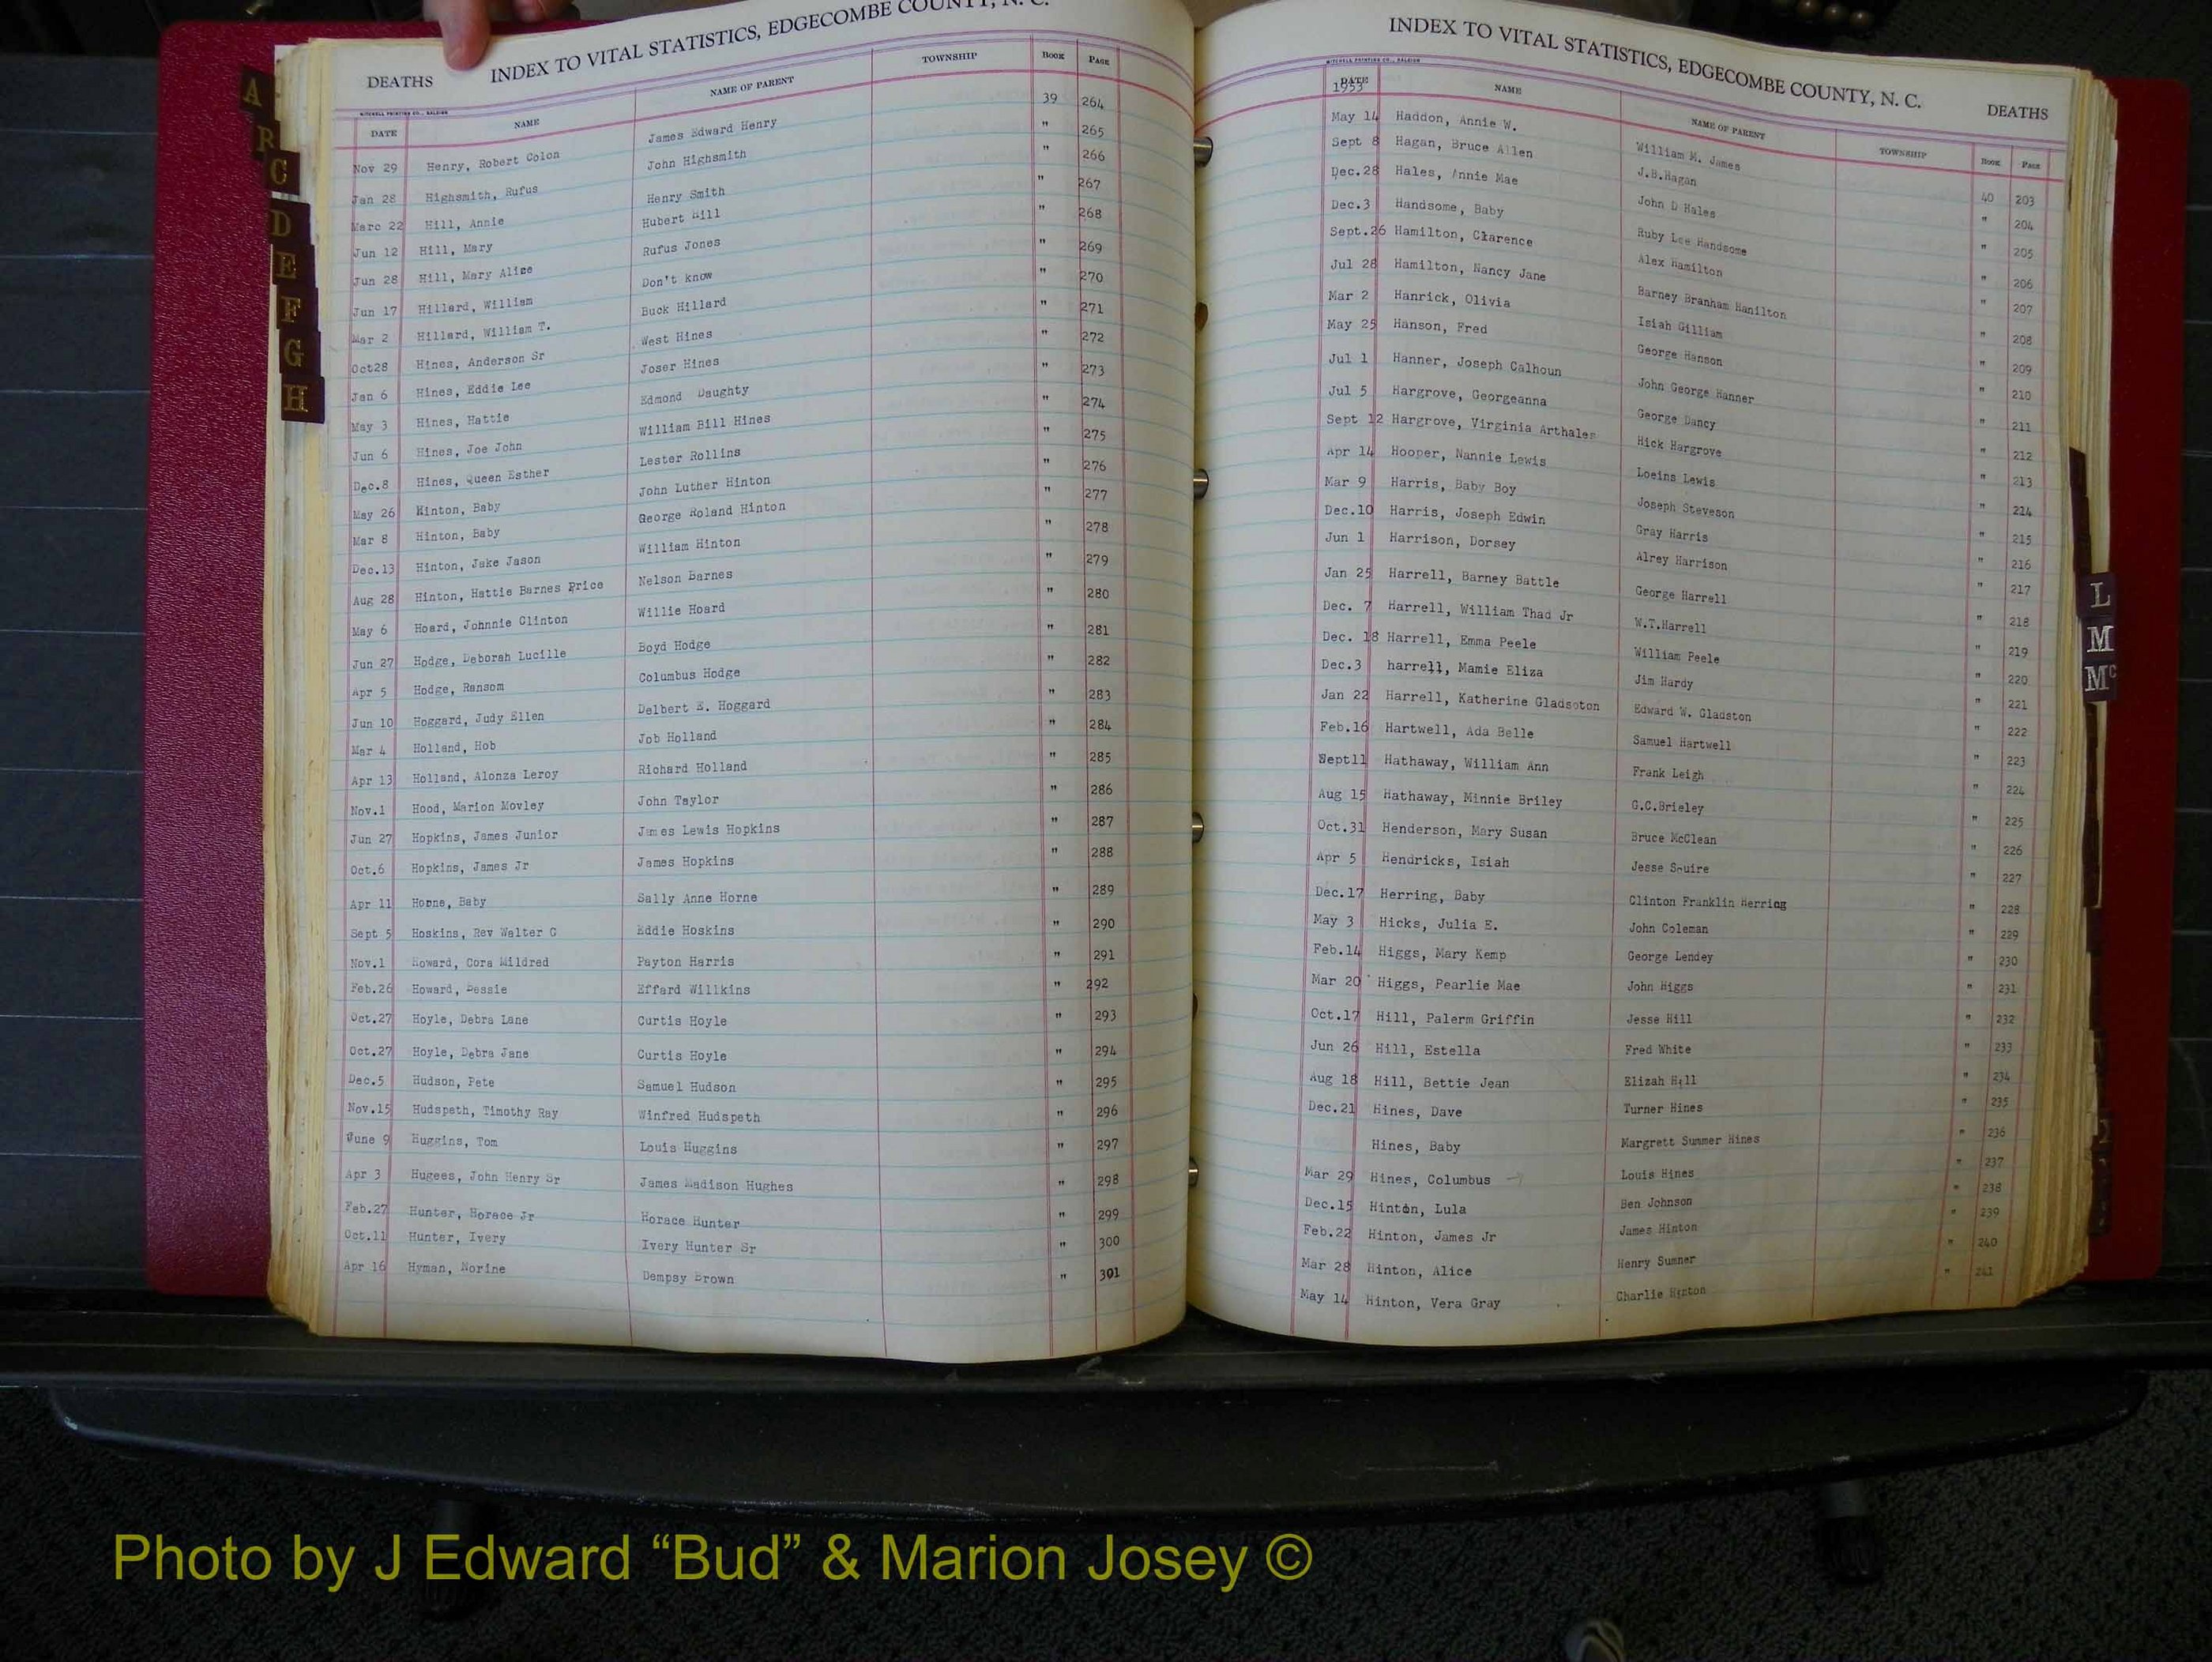 DEATHS INDEX TO VITAL STATISTICS, EDGECOMBE COUNTY, N. C.
MITCHELL PRINTING CO., RALEIGH
DATE NAME NAME OF PARENT TOWNSHIP BOOK PAGE
Nov 29 Henry, Robert Colon James Edward Henry 39 264
Jan 28 Highsmith, Rufus John Highsmith " 265
Marc 22 Hill, Annie Henry Smith " 266
Jun 12 Hill, Mary Hubert Hill " 267
Jun 28 Hill, Mary Alice Rufus Jones " 268
Jun 17 Hillard, William Don't know " 269
Mar 2 Hillard, William T. Buck Hillard " 270
Oct28 Hines, Anderson Sr West Hines " 271
Jan 6 Hines, Eddie Lee Joser Hines " 272
May 3 Hines, Hattie Edmond Daughty " 273
Jun 6 Hines, Joe John William Bill Hines " 274
Dec.8 Hines, Queen Esther Lester Rollins " 275
May 26 Hinton, Baby John Luther Hinton " 276
Mar 8 Hinton, Baby George Roland Hinton " 277
Dec.13 Hinton, Jake Jason William Hinton " 278
Aug 28 Hinton, Hattie Barnes Price Nelson Barnes " 279
May 6 Hoard, Johnnie Clinton Willie Hoard " 280
Jun 27 Hodge, Deborah Lucille Boyd Hodge " 281
Apr 5 Hodge, Ransom Columbus Hodge " 282
Jun 10 Hoggard, Judy Ellen Delbert E. Hoggard " 283
Mar 4 Holland, Hob Job Holland " 284
Apr 13 Holland, Alonza Leroy Richard Holland " 285
Nov.1 Hood, Marion Movley John Taylor " 286
Jun 27 Hopkins, James Junior James Lewis Hopkins " 287
Oct.6 Hopkins, James Jr James Hopkins " 288
Apr 11 Horne, Baby Sally Anne Horne " 289
Sept 5 Hoskins, Rev Walter C Eddie Hoskins " 290
Nov.1 Howard, Cora Mildred Payton Harris " 291
Feb.26 Howard, Bessie Effard Willkins " 292
Oct.27 Hoyle, Debra Lane Curtis Hoyle " 293
Oct.27 Hoyle, Debra Jane Curtis Hoyle " 294
Dec.5 Hudson, Pete Samuel Hudson " 295
Nov.15 Hudspeth, Timothy Ray Winfred Hudspeth " 296
June 9 Huggins, Tom Louis Huggins " 297
Apr 3 Hugees, John Henry Sr James Madison Hughes " 298
Feb.27 Hunter, Horace Jr Horace Hunter " 299
Oct.11 Hunter, Ivery Ivery Hunter Sr " 300
Apr 16 Hyman, Norine Dempsy Brown " 301
A
C
D
E
F
G
H
INDEX TO VITAL STATISTICS, EDGECOMBE COUNTY, N. C. DEATHS
MITCHELL PRINTING CO., RALEIGH
DATE NAME NAME OF PARENT TOWNSHIP BOOK PAGE
1953
May 14 Haddon, Annie W. William M. James 40 203
Sept 8 Hagan, Bruce Allen J.B.Hagan " 204
Dec.28 Hales, Annie Mae John D Hales " 205
Dec.3 Handsome, Baby Ruby Lee Handsome " 206
Sept.26 Hamilton, Clarence Alex Hamilton " 207
Jul 28 Hamilton, Nancy Jane Barney Branham Hanilton " 208
Mar 2 Hanrick, Olivia Isiah Gilliam " 209
May 25 Hanson, Fred George Hanson " 210
Jul 1 Hanner, Joseph Calhoun John George Hanner " 211
Jul 5 Hargrove, Georgeanna George Dancy " 212
Sept 12 Hargrove, Virginia Arthales Hick Hargrove " 213
Apr 14 Hooper, Nannie Lewis Loeins Lewis " 214
Mar 9 Harris, Baby Boy Joseph Steveson " 215
Dec.10 Harris, Joseph Edwin Gray Harris " 216
Jun 1 Harrison, Dorsey Alrey Harrison " 217
Jan 25 Harrell, Barney Battle George Harrell " 218
Dec. 7 Harrell, William Thad Jr W.T.Harrell " 219
Dec. 18 Harrell, Emma Peele William Peele " 220
Dec.3 harrell, Mamie Eliza Jim Hardy " 221
Jan 22 Harrell, Katherine Gladsoton Edward W. Gladston " 222
Feb.16 Hartwell, Ada Belle Samuel Hartwell " 223
Sept11 Hathaway, William Ann Frank Leigh " 224
Aug 15 Hathaway, Minnie Briley G.C.Brieley " 225
Oct.31 Henderson, Mary Susan Bruce McClean " 226
Apr 5 Hendricks, Isiah Jesse Squire " 227
Dec.17 Herring, Baby Clinton Franklin Herring " 228
May 3 Hicks, Julia E. John Coleman " 229
Feb.14 Higgs, Mary Kemp George Lendey " 230
Mar 20 Higgs, Pearlie Mae John Higgs " 231
Oct.17 Hill, Palerm Griffin Jesse Hill " 232
Jun 26 Hill, Estella Fred White " 233
Aug 18 Hill, Bettie Jean Elizah Hill " 234
Dec.21 Hines, Dave Turner Hines " 235
Hines, Baby Margrett Summer Hines " 236
Mar 29 Hines, Columbus Louis Hines " 237
Dec.15 Hinton, Lula Ben Johnson " 238
Feb.22 Hinton, James Jr James Hinton " 239
Mar 28 Hinton, Alice Henry Sumner " 240
May 14 Hinton, Vera Gray Charlie Hinton " 241
L
M
Mc
Photo by J Edward “Bud” & Marion Josey ©